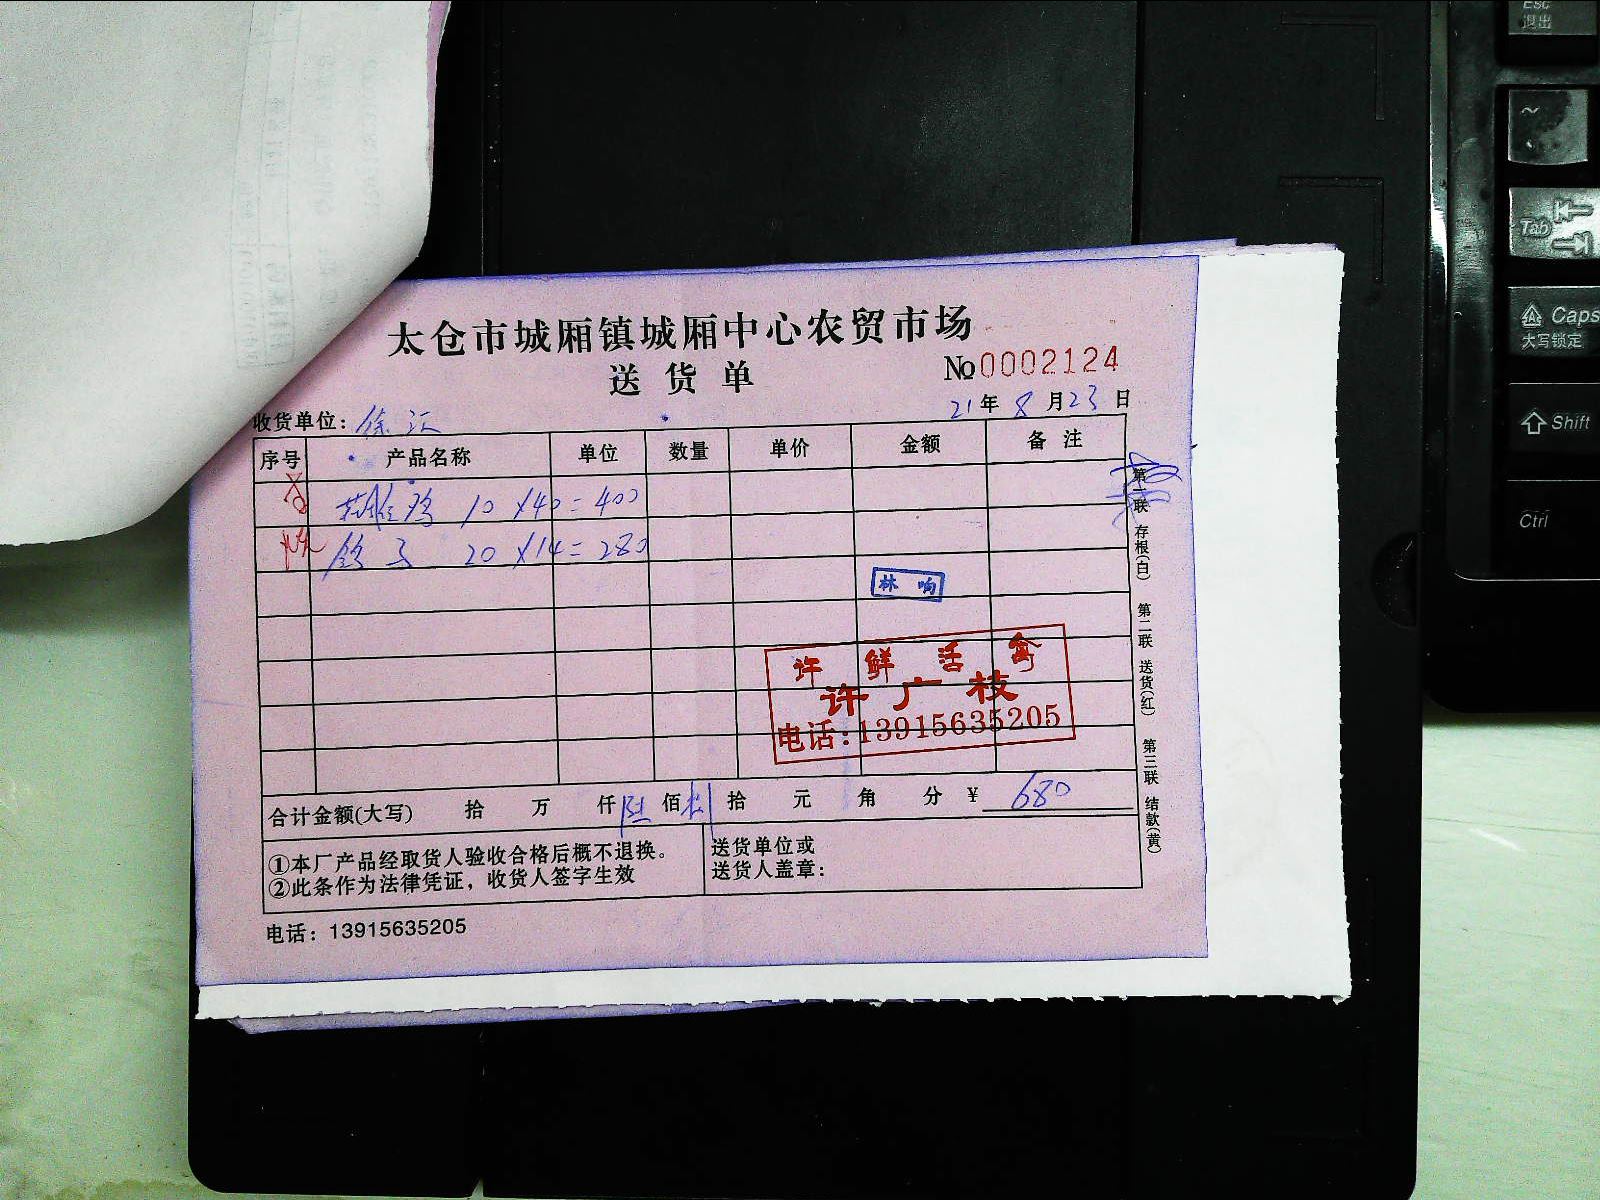 太仓市城厢镇城厢中心农贸市场
送货单
No 0002124
收货单位: 徐汇
21年8月23日
序号 产品名称 单位 数量 单价 金额 备注
草雄鸡 10×40=400
鸽子 20×14=280
林响
许鲜活禽
许广枝
电话:13915635205
合计金额(大写) 拾 万 仟 陆 佰 捌 拾 元 角 分 ¥ 680
①本厂产品经取货人验收合格后概不退换。
②此条作为法律凭证，收货人签字生效
送货单位或
送货人盖章:
电话: 13915635205
第一联 存根(白) 第二联 送货(红) 第三联 结款(黄)
Esc
退出
~
Tab
Caps
大写锁定
Shift
Ctrl